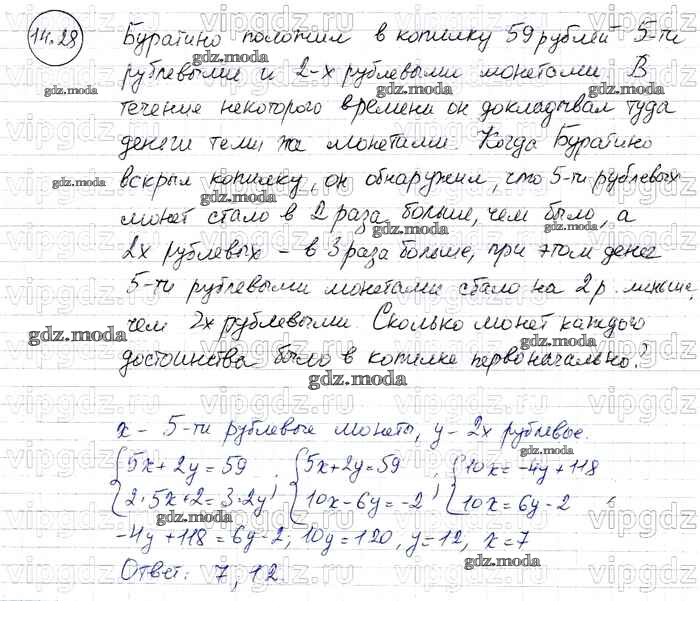 14.28
Буратино положил в копилку 59 рублей 5-ти
рублевыми и 2-х рублевыми монетами. В
течение некоторого времени он докладывал туда
деньги теми же монетами. Когда Буратино
вскрыл копилку, он обнаружил, что 5-ти рублевых
монет стало в 2 раза больше, чем было, а
2х рублевых - в 3 раза больше, при этом денег
5-ти рублевыми монетами стало на 2 р. меньше,
чем 2х рублевыми. Сколько монет каждого
достоинства было в копилке первоначально?
x - 5-ти рублевые монеты, y - 2х рублевые.
{5x+2y=59 ; {5x+2y=59 ; {10x=-4y+118
{2·5x+2=3·2y ; {10x-6y=-2 ; {10x=6y-2 ;
-4y+118=6y-2; 10y=120, y=12, x=7
Ответ: 7, 12.
vipgdz.ru
gdz.moda